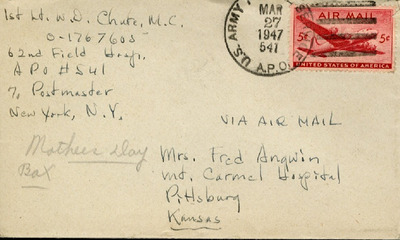 1st Lt. W.D. Chute, M.C.
O-1767605
62nd Field Hosp.
A P O # 541
% Postmaster
New York, N.Y.
U.S. ARMY
MAR
27
1947
541
A.P.O.
AIR MAIL
5¢ 5¢
UNITED STATES OF AMERICA
VIA AIR MAIL
Mothers day
Box
Mrs. Fred Angwin
Mt. Carmel Hospital
Pittsburg
Kansas